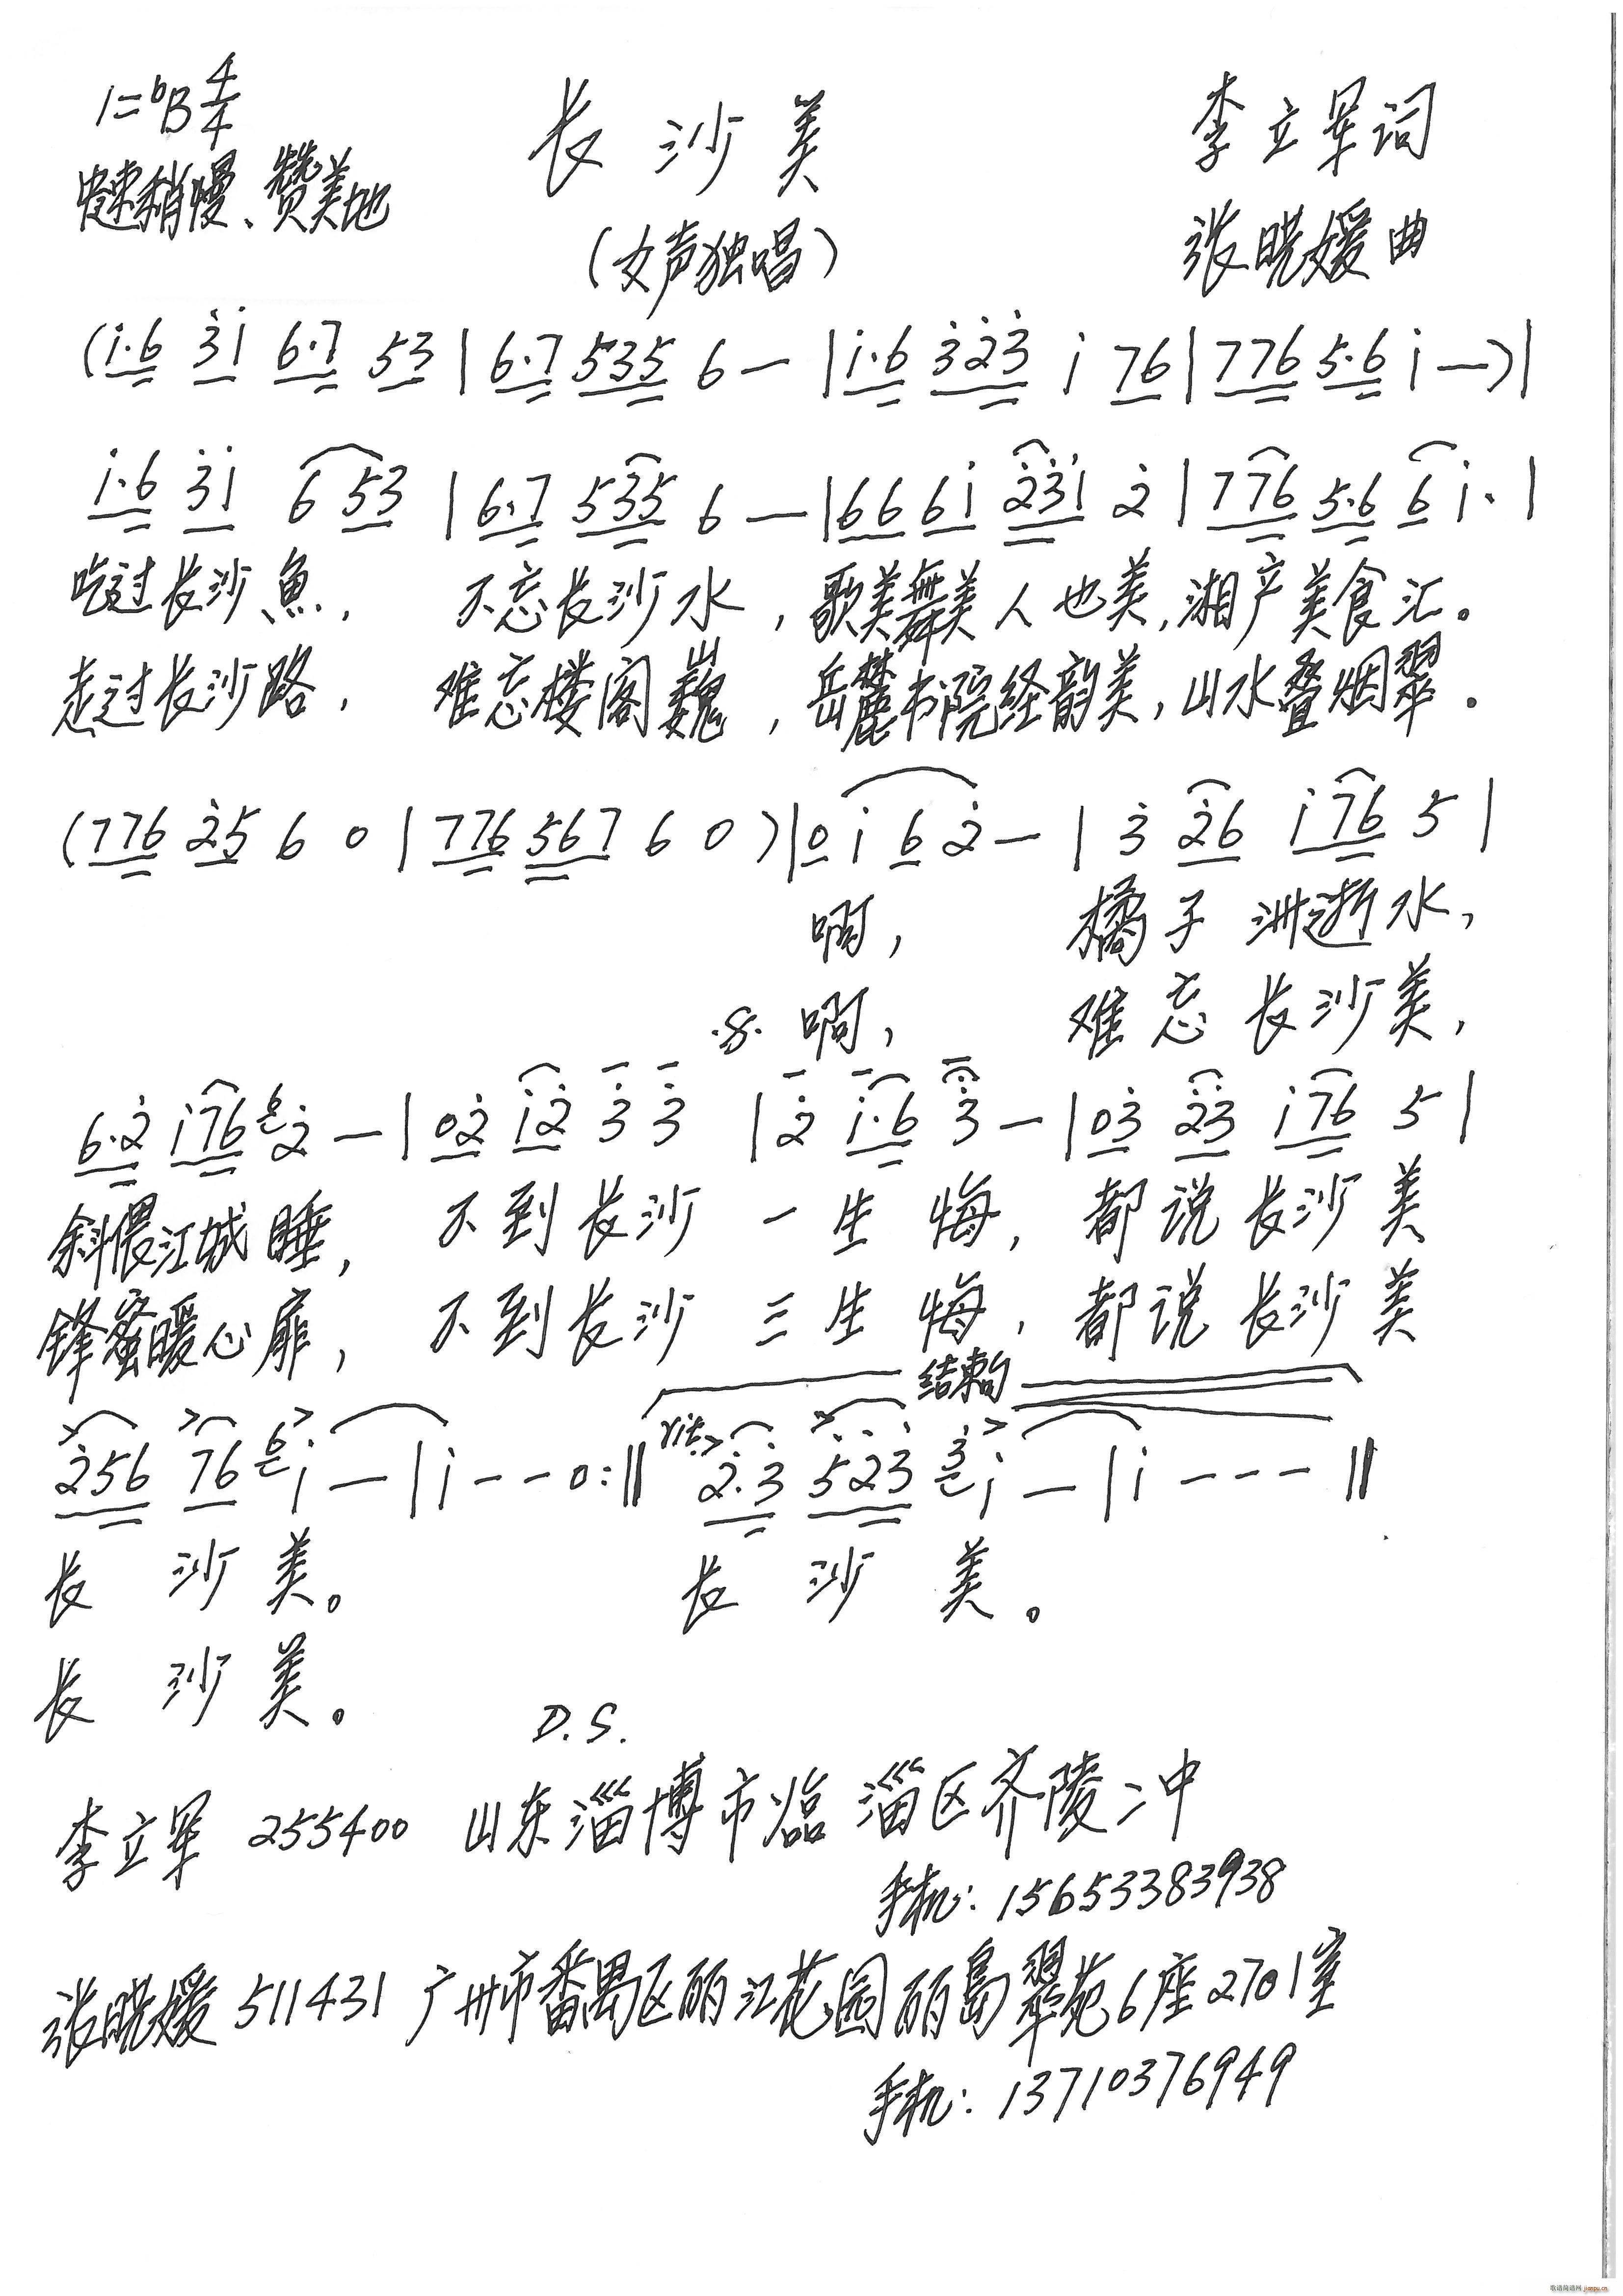 1=♭B 4/4
长沙美
李立军词
中速稍慢、赞美地
(女声独唱)
张晓媛曲
(i·6 3i 6·7 53|6·7 535 6 —|i·6 323 i 76|776 5·6 i —)|
i·6 3i 6 53|6·7 535 6 —|66 6i 231 2|776 5·6 6 i·|
吃过长沙鱼, 不忘长沙水,歌美舞美人也美,湘产美食汇。
走过长沙路, 难忘楼阁巍,岳麓书院经韵美,山水叠烟翠.
(776 25 6 0|776 567 6 0)|0 i 6 2 —|3 26 i76 5|
啊, 橘子洲逝水,
.S. 啊, 难忘长沙美,
6·2 i76 6 2 —|02 i2 3 3|2 i·6 3 —|03 23 i76 5|
斜偎江城睡, 不到长沙一生悔,都说长沙美
锋蜜暖心扉, 不到长沙三生悔,都说长沙美
结束句
256 76 6 i —|i - - 0:‖ rit. 2·3 523 3 i —|i - - - ‖
长沙美。 长沙美。
长沙美。
D.S.
李立军 255400 山东淄博市临淄区齐陵二中
手机:15653383938
张晓媛 511431 广州市番禺区丽江花园丽岛翠苑6座2701室
手机:13710376949
歌谱简谱网 jianpu.cn